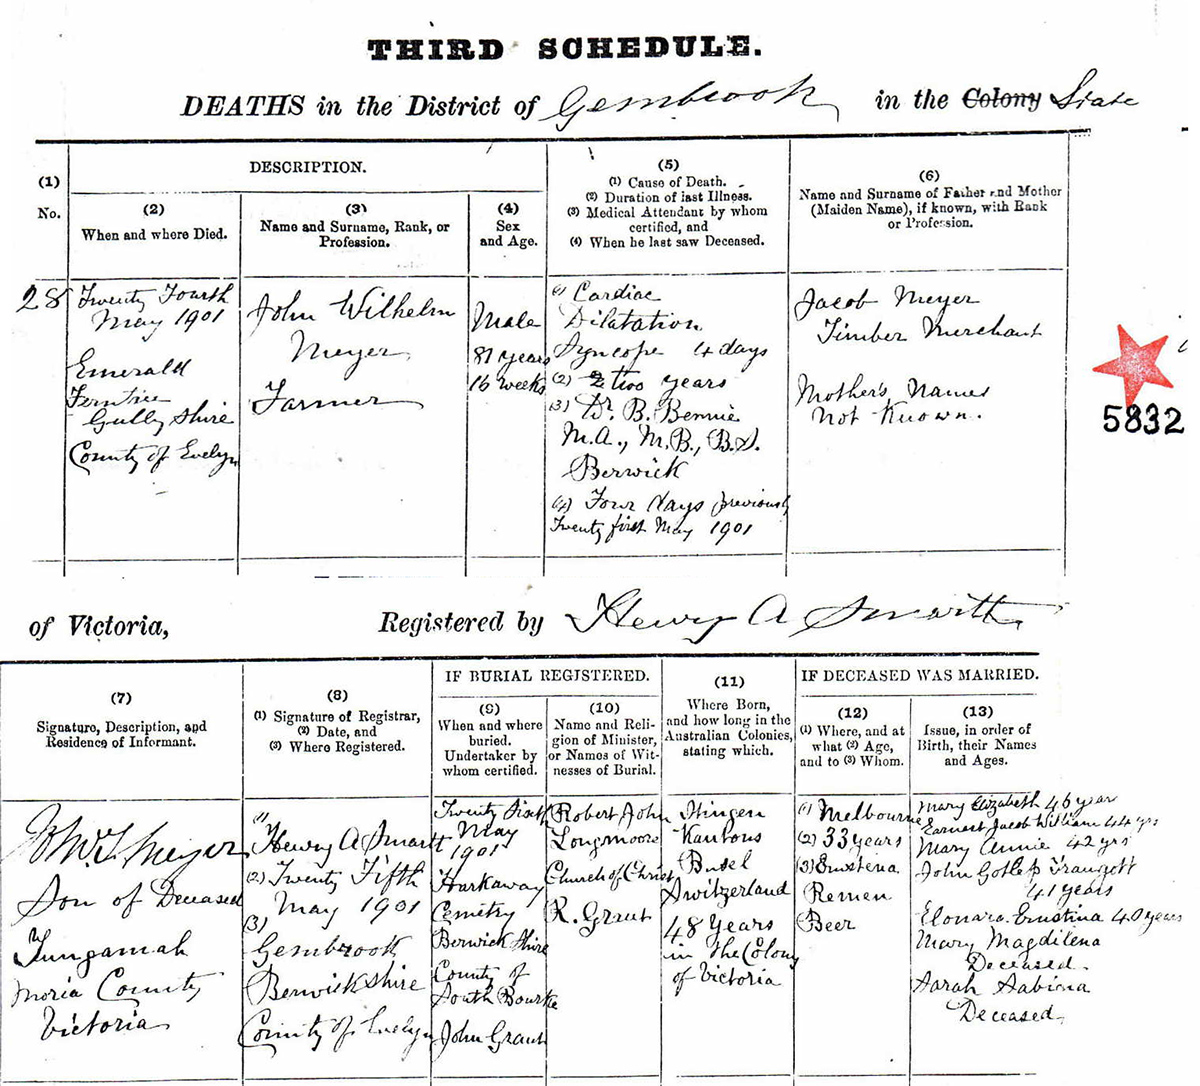 THIRD SCHEDULE.
DEATHS in the District of Gembrook in the Colony State
(1)
No.
DESCRIPTION.
(2)
When and where Died.
(3)
Name and Surname, Rank, or
Profession.
(4)
Sex
and Age.
(5)
(1) Cause of Death.
(2) Duration of last Illness.
(3) Medical Attendant by whom
certified, and
(4) When he last saw Deceased.
(6)
Name and Surname of Father and Mother
(Maiden Name), if known, with Rank
or Profession.
28
Twenty Fourth
May 1901
Emerald
Ferntree
Gully Shire
County of Evelyn
John Wilhelm
Meyer
Farmer
Male
81 years
16 weeks
(1) Cardiac
Dilatation
Syncope 4 days
(2) 2 two years
(3) Dr. B. Bennie
M.A., M.B., B.S.
Berwick
(4) Four days previously
Twenty first May 1901
Jacob Meyer
Timber Merchant
Mother's Names
Not Known.
5832
of Victoria,
Registered by Henry A Smartt
(7)
Signature, Description, and
Residence of Informant.
(8)
(1) Signature of Registrar,
(2) Date, and
(3) Where Registered.
IF BURIAL REGISTERED.
(9)
When and where
buried.
Undertaker by
whom certified.
(10)
Name and Reli-
gion of Minister,
or Names of Wit-
nesses of Burial.
(11)
Where Born,
and how long in the
Australian Colonies,
stating which.
IF DECEASED WAS MARRIED.
(12)
(1) Where, and at
what (2) Age,
and to (3) Whom.
(13)
Issue, in order of
Birth, their Names
and Ages.
Meyer
Son of Deceased
Tungamah
Moria County
Victoria
(1)
Henry A Smartt
(2) Twenty Fifth
May 1901
(3)
Gembrook
Berwick Shire
County of Evelyn
Twenty Sixth
May
1901
Harkaway
Cemitry
Berwick Shire
County of
South Bourke
John Grant
Robert John
Longmoore
Church of Christ
R. Grant
Itingen
Kantons
Basel
Switzerland
48 Years
in the Colony
of Victoria
(1) Melbourne
(2) 33 years
(3) Ernstena
Remen
Beer
Mary Elizabeth 46 year
Earnest Jacob William 44 yrs
Mary Annie 42 yrs
John Gotlep Traugott
41 years
Elonara Ernstina 40 years
Mary Magdilena
Deceased
Sarah Sabina
Deceased